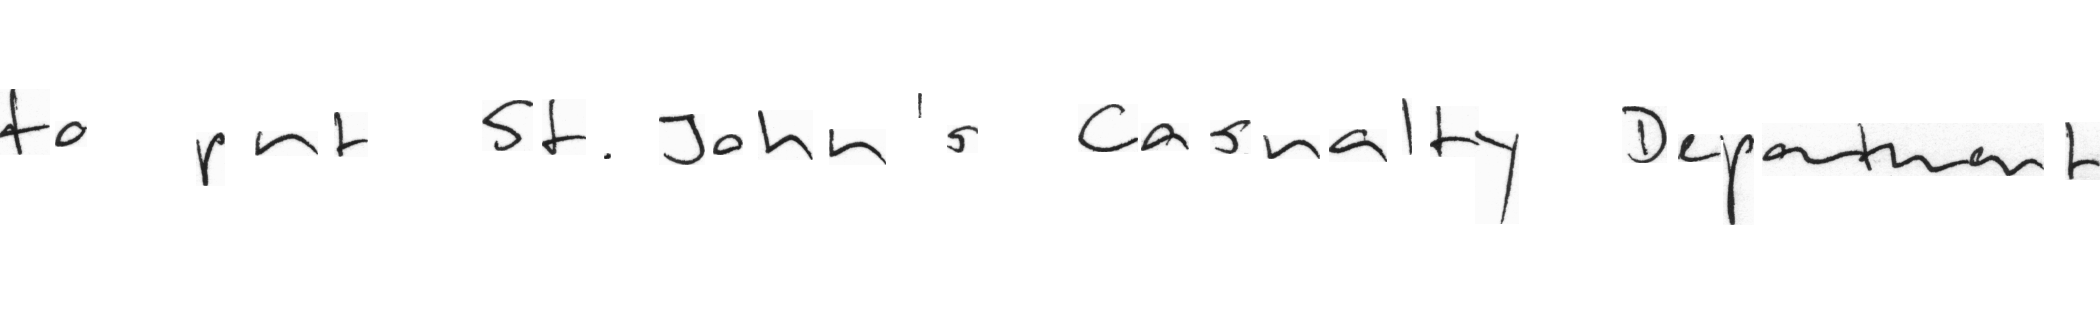 to put St. John's Casualty Department